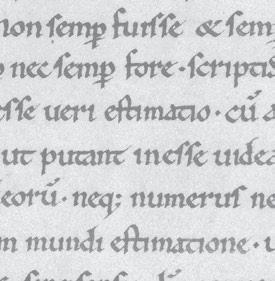 non semꝑ fuisse & sem
nec semꝑ fore · scriptis
esse ueri estimatio · cū
ut putant inesse uidea
eorū · neq; numerus ne
m mundi estimatione · u